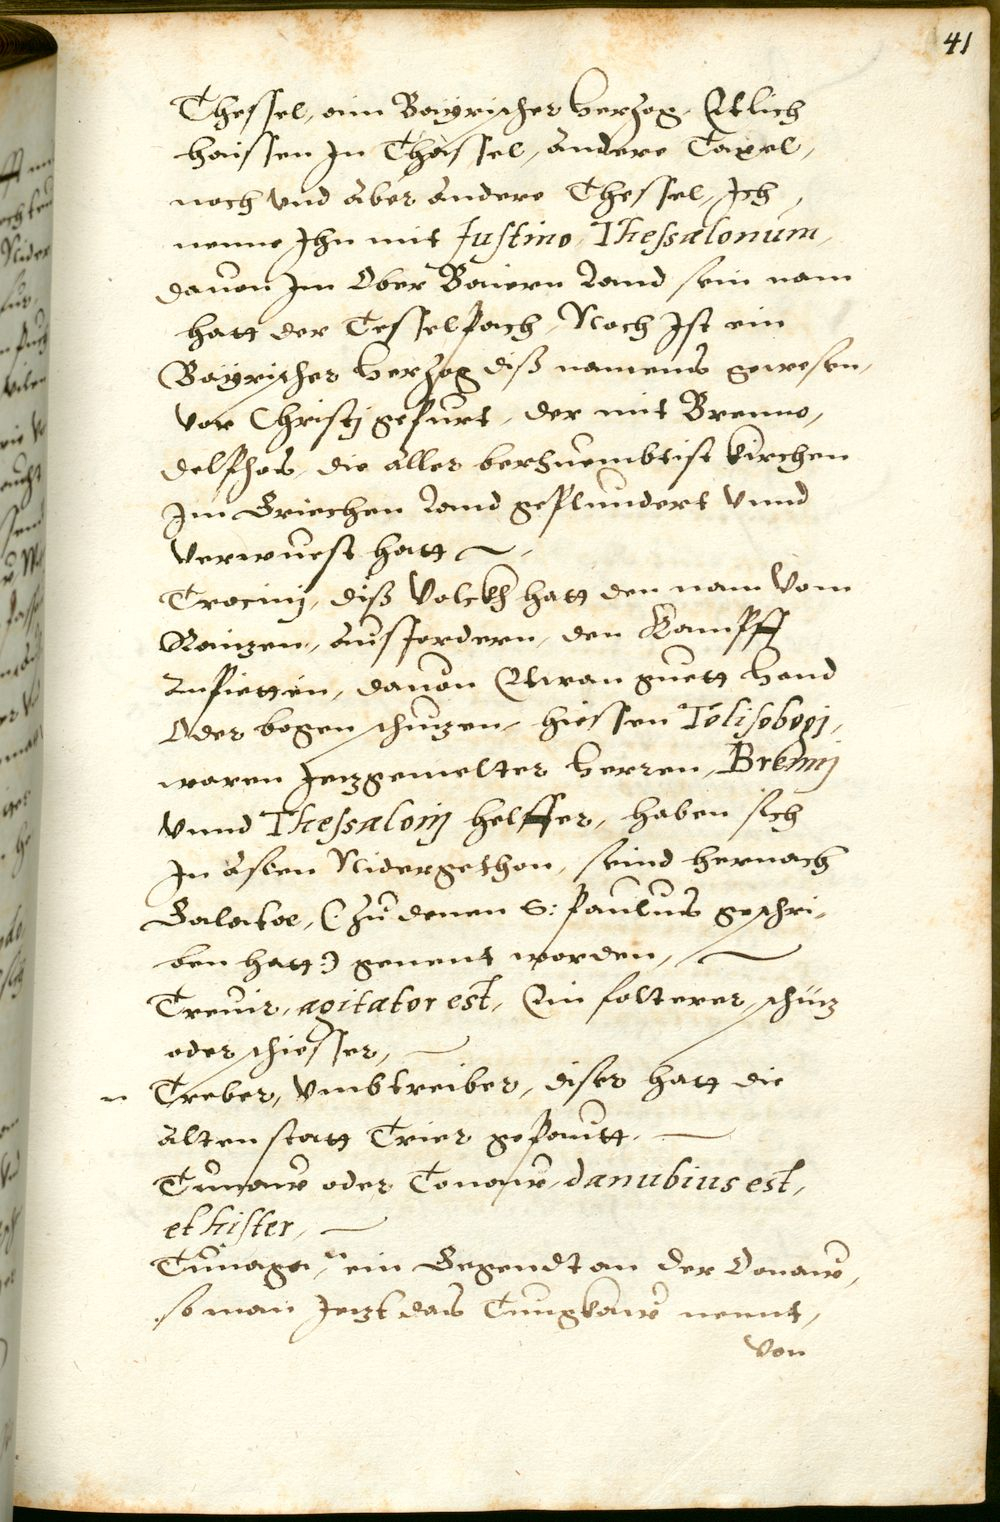 41
Thessel, ain Bayrischer Herzog. Etlich
haissen In Thassel, andere Taxel,
noch vnd aber andere Thessel, Ich
nenne Ihn mit Justino, Thessalonum,
dauon Im Ober Baiern Land sein nam
hatt der Tesselpach, Noch Ist ein
Bayrischer Herzog diß namens gewesen,
vor Christj gepurt, der mit Brenno,
delphos, die aller berhuembtist kirchen
Im Griechen Land geplundert vnnd
verwuest hatt
Trocinij, diß Volckh hatt den nam vom
Raizen, ausfordern, den Kampff
Anpietten, dauon Etwan guett Hand
Oder bogen schuzen, hiessen Tolisobogj,
waren Jezgemelter Herren, Brennj
vnnd Thessalonj helffer, haben sich
In asien Nidergethon, seind hernach
Galatae, (: zu denen S: Paulus geschri,
ben hatt :) genent worden,
Treuir, agitator est, Ein falterer, schüz
oder schiesser,
Treber, Vmbtreiber, diser hatt die
alten statt Trier gepautt.
Tunaw oder Tonaw, danubius est,
et hister,
Tunaga, ein Gegendt an der Donaw,
so man Jezt das Tungkaw nennt,
Von